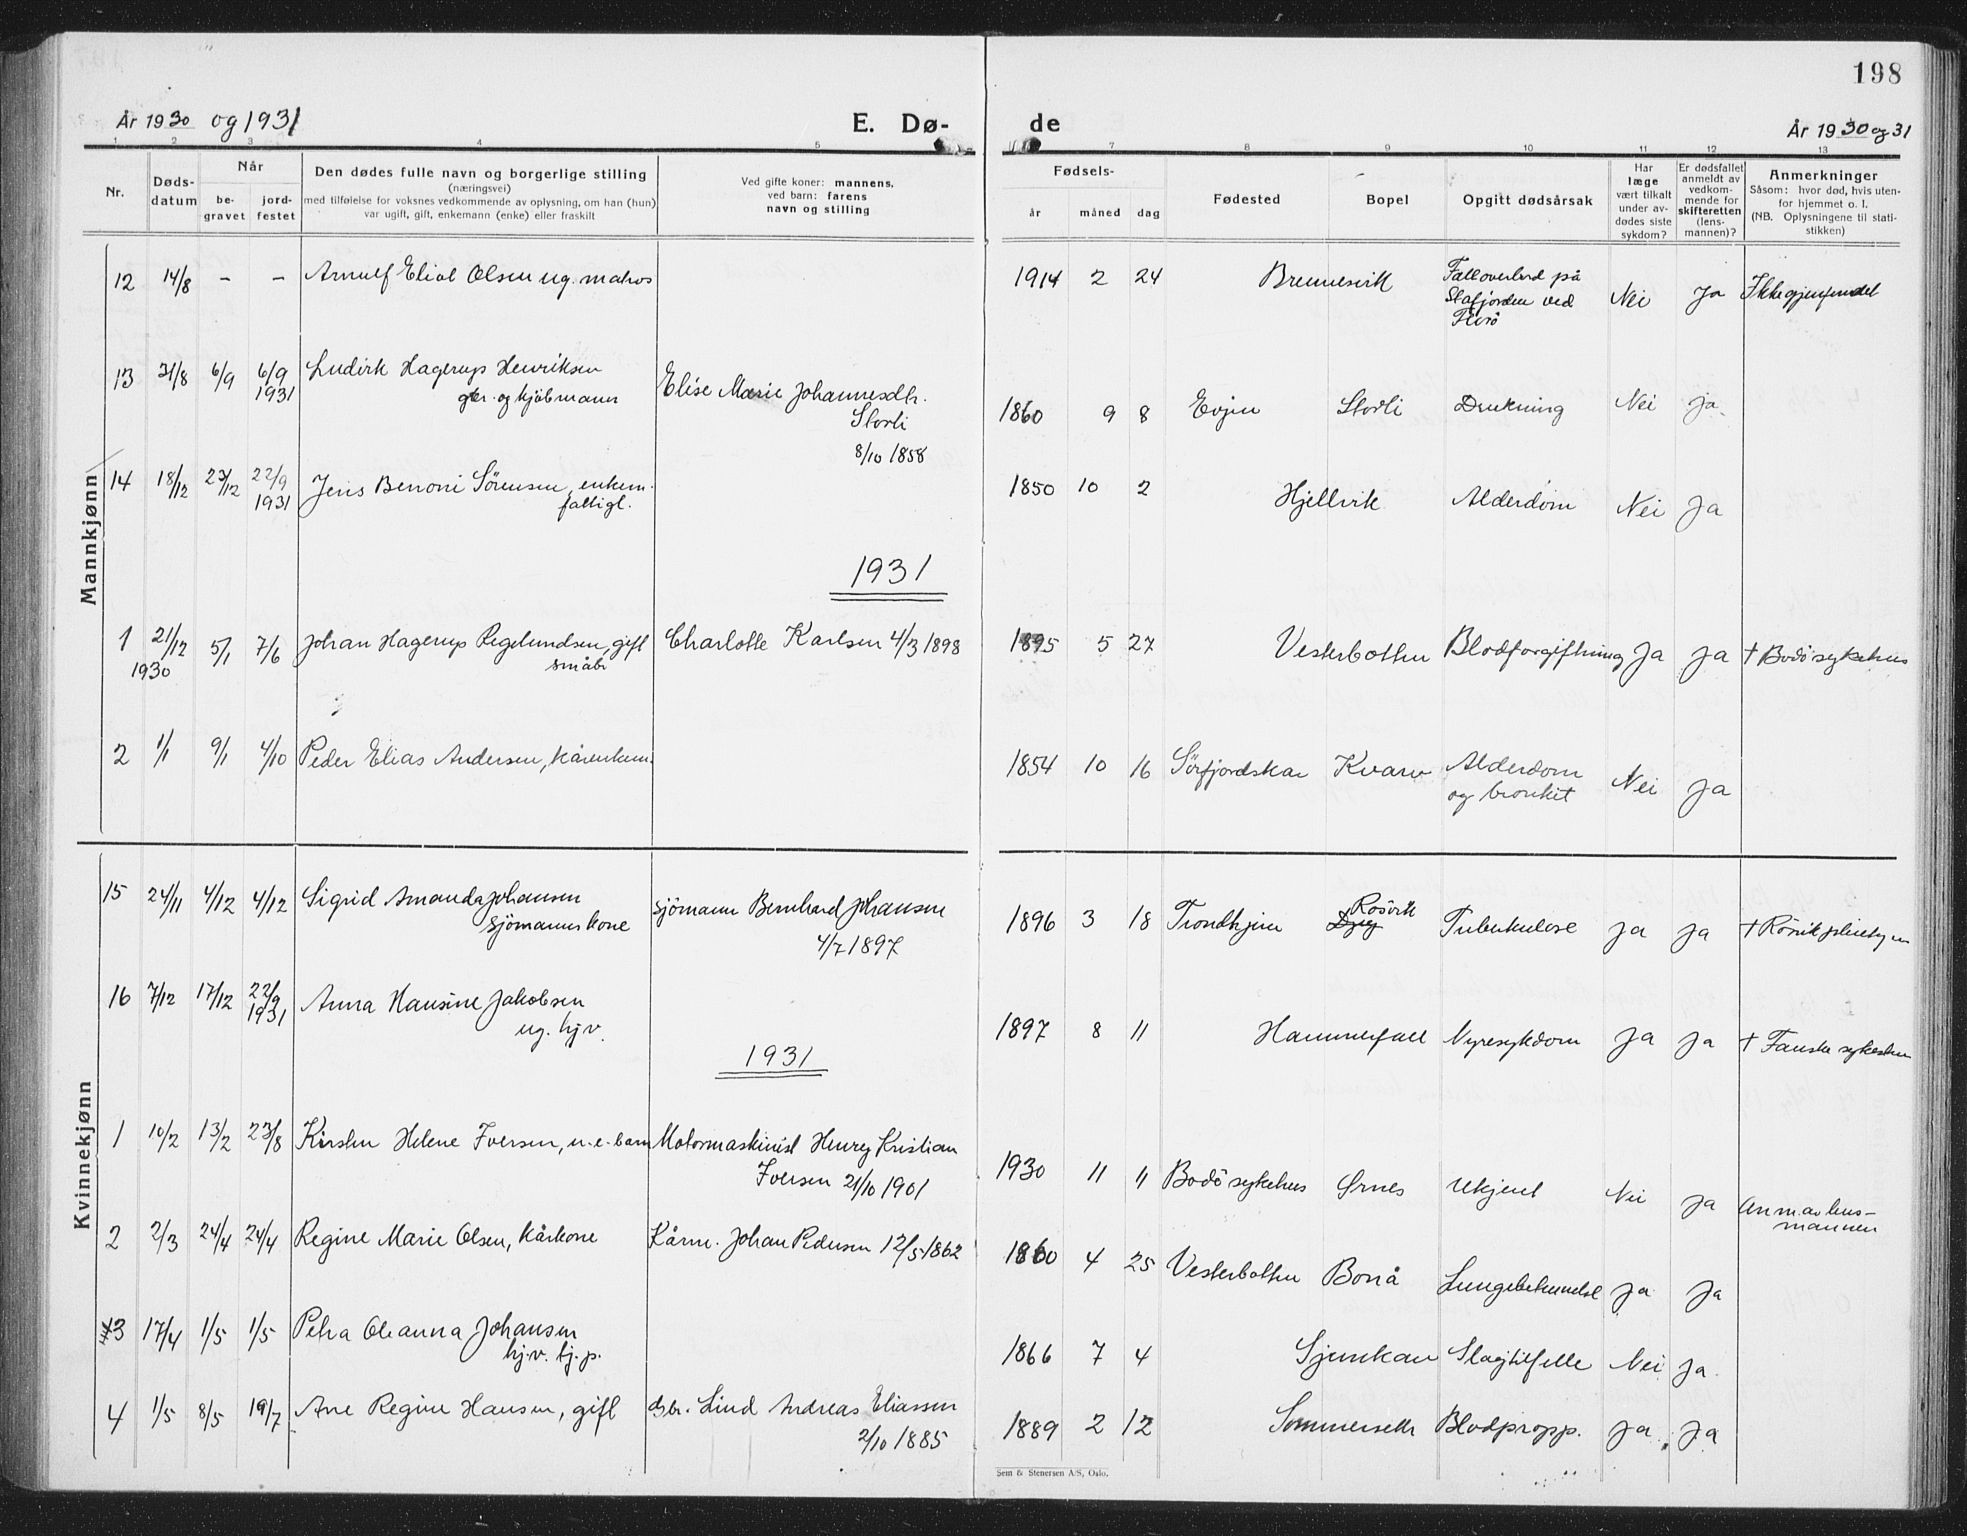 198
År 1930 og 1931
E. Dø- de
År 1930 og 31
1 2 3 4 5 7 8 9 10 11 12 13
Nr.
Døds-
datum
Når
be-
gravet
jord-
festet
Den dødes fulle navn og borgerlige stilling
(næringsvei)
med tilføielse for voksnes vedkommende av oplysning, om han (hun)
var ugift, gift, enkemann (enke) eller fraskilt
Ved gifte koner: mannens,
ved barn: farens
navn og stilling
Fødsels-
år måned dag
Fødested
Bopel
Opgitt dødsårsak
Har
læge
vært tilkalt
under av-
dødes siste
sykdom?
Er dødsfallet
anmeldt av
vedkom-
mende for
skifteretten
(lens-
mannen)?
Anmerkninger
Såsom: hvor død, hvis uten-
for hjemmet o. l.
(NB. Oplysningene til stati-
stikken)
Mannkjønn
12 14/8 - - Arnulf Eliot Olsen ug. matros 1914 2 24 Brennesvik Fall overbord på
Stafjorden ved
Florö
Nei Ja Ikke gjenfundet
13 31/8 6/9 6/9
1931
Ludvik Hagerup Henriksen
gbr. og kjöbmann
Elise Marie Johannesdtr.
Storli
8/10 1858
1860 9 8 Evjen Storli Drukning Nei ja
14 18/12 23/12 22/9
1931
Jens Benoni Sörensen, enkem.
fattigl.
1850 10 2 Hjellvik Alderdom Nei Ja
1931
1 21/12
1930
5/1 7/6 Johan Hagerup Regelundsen, gift
småbr
Charlotte Karlsen 4/3 1898
1895 5 27 Vesterbotten Blodforgiftning Ja Ja † Bodö sykehus
2 1/1 9/1 4/10 Peder Elias Andersen, kårenkem. 1854 10 16 Sörfjordskar Kvarv Alderdom
og bronkit
Nei Ja
Kvinnekjønn
15 24/11 4/12 4/12 Sigrid Amanda Johansen
sjömannskone
sjömann Bernhard Johansen
4/7 1897
1896 3 18 Trondhjem Rösvik
Tuberkulose Ja Ja
16 7/12 17/12 22/9
1931
Anna Hansine Jakobsen
ug. hj.v.
1897 8 11 Hammerfall Nyresykdom Ja Ja † Fauske sykehus
1931
1 10/2 13/2 23/8 Kirsten Helene Iversen, u.e. barn Motormaskinist Henry Kristian
Iversen 21/10 1901
1930 11 11 Bodö sykehus Ørnes Ukjent Nei Ja Anm. av lens-
mannen
2 2/3 24/4 24/4 Regine Marie Olsen, kårkone Kårm. Johan Pedersen 12/5 1862
1860 4 25 Vesterbotten Bonå Lungebetennelse Ja Ja
3 17/4 1/5 1/5 Petra Oleanna Johansen
hj.v. tj.p.
1866 7 4 Sjunkan Slagtilfelle Nei Ja
4 1/5 8/5 19/7 Ane Regine Hansen, gift Gbr. Lind Andreas Eliassen
2/10 1885
1889 2 12 Sommersetr Blodpropp. Ja Ja
Sem & Stenersen A/S, Oslo.